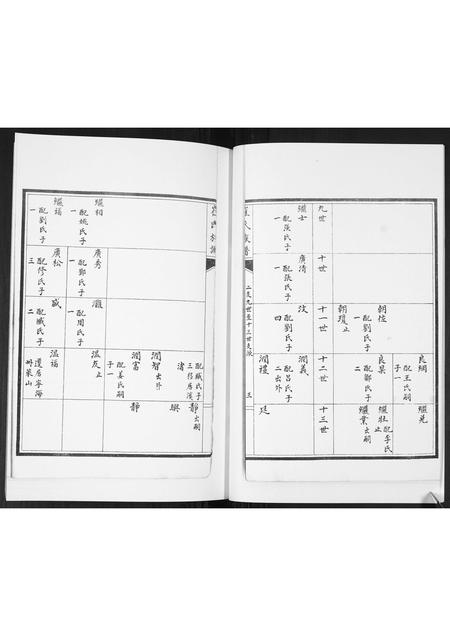 九世
繼士
配張氏子一
十世
廣清
配張氏子一
十一世
朝佐
配劉氏子一
朝瓊止
汶
配劉氏子四
十二世
良綱
配王氏嗣子一
良杲
配鄭氏子二
潤義
配呂氏子二出外
潤禮
十三世
繼先
繼壯止
配李氏
繼業出嗣
廷
二支九世至十三世支派
五
氏族譜
繼相
配姚氏子一
繼福
配劉氏子一
廣秀
配鄭氏子一
廣松
配修氏子三
灝
配周氏子一
配臧氏子二
配臧氏子三
智出外
潤富
配姜氏嗣子一
溫友止
溫福
遷居寧海州萊山
靜出嗣
興
靜